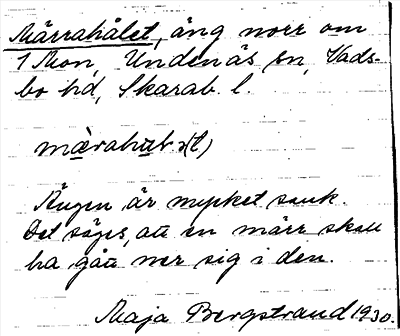 Märrahålet, äng norr om
1 Mon, Undenäs sn, Vads-
bo hd, Skarab. l.
Ängen är mycket sank.
Det säges, att en märr skall
ha gått ner sig i den.
Maja Bergstrand 1930.